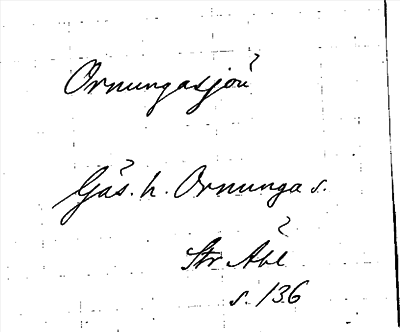 Ornungasjön
Gäs. h. Ornunga s.
Str Ävl
s. 136